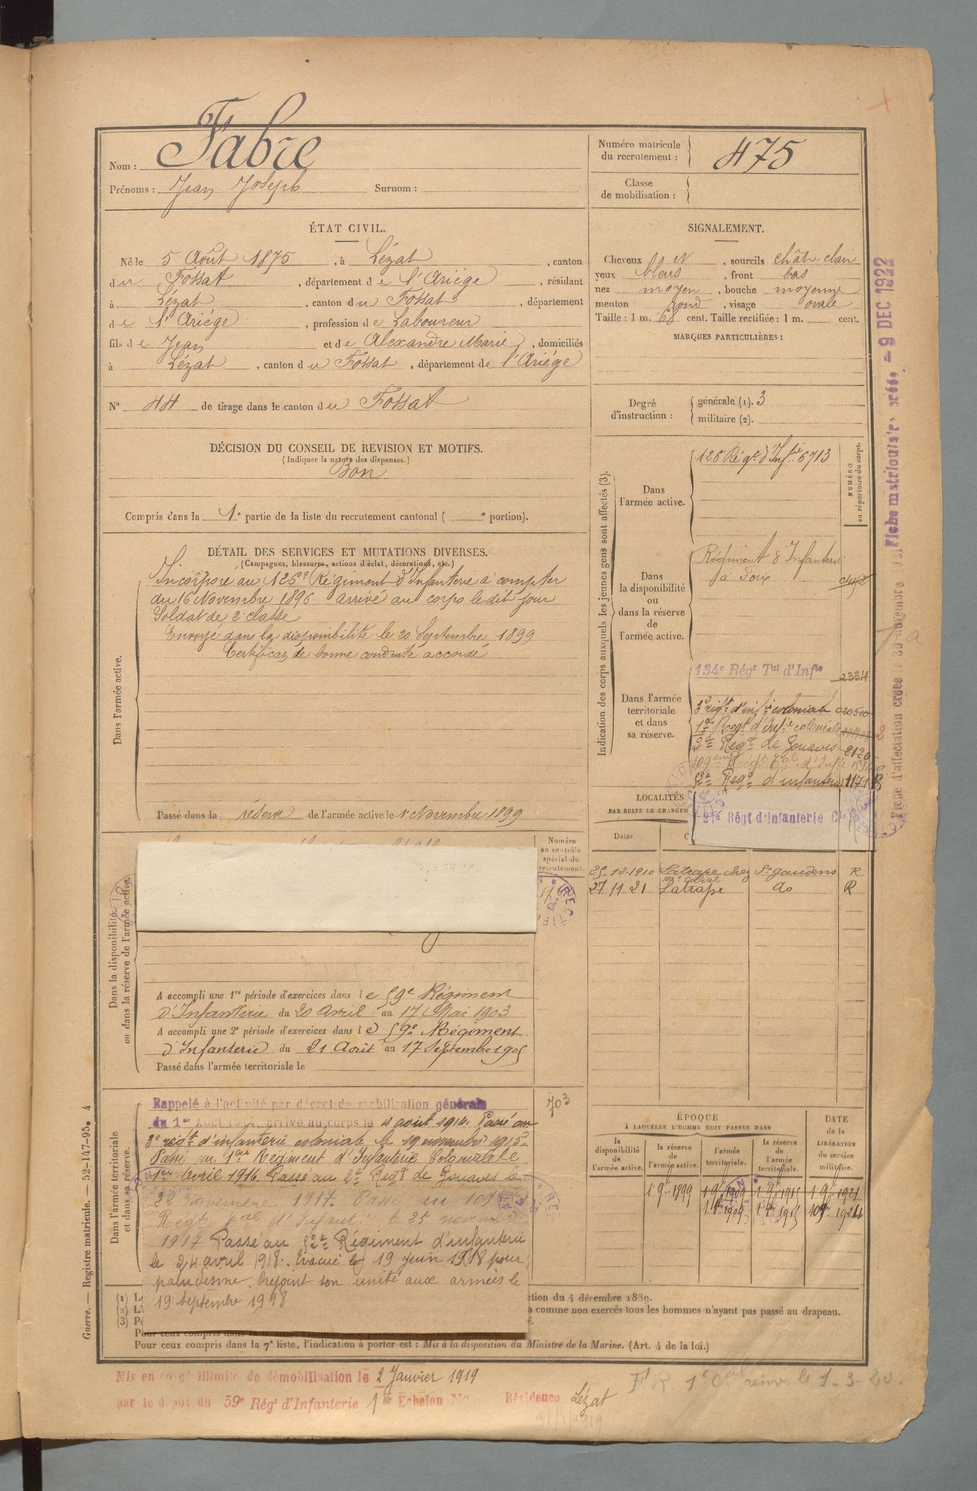 Nom : Fabre
Prénoms : Jean Joseph Surnom :
Numéro matricule du recrutement : 475
Classe de mobilisation :
ÉTAT CIVIL.
Né le 5 Août 1875, à Lézat, canton
du Fossat, département de l'Ariège, résidant
à Lézat, canton du Fossat, département
de l'Ariège, profession de Laboureur
fils de Jean et de Alexandre Marie, domiciliés
à Lézat, canton du Fossat, département de l'Ariège
N° 44 de tirage dans le canton du Fossat
SIGNALEMENT.
Cheveux bl N, sourcils chât. clair
yeux bleus, front bas
nez moyen, bouche moyenne
menton rond, visage ovale
Taille : 1 m. 68 cent. Taille rectifiée : 1 m. cent.
MARQUES PARTICULIÈRES :
Degré d'instruction : générale (1). 3
militaire (2).
DÉCISION DU CONSEIL DE REVISION ET MOTIFS.
(Indiquer la nature des dispenses.)
Bon
Compris dans la 1e partie de la liste du recrutement cantonal ( e portion).
DÉTAIL DES SERVICES ET MUTATIONS DIVERSES.
(Campagnes, blessures, actions d'éclat, décorations, etc.)
Dans l'armée active.
Incorporé au 126e Régiment d'Infanterie à compter
du 16 Novembre 1896. Arrivé au corps le dit jour
Soldat de 2e classe
Envoyé dans la disponibilité le 20 Septembre 1899
Certificat de bonne conduite accordé
Passé dans la réserve de l'armée active le 1 Novembre 1899
Indication des corps auxquels les jeunes gens sont affectés (3).
NUMÉRO au répertoire du corps.
Dans l'armée active.
126 Rég. d'Inf. 6713
Dans la disponibilité ou dans la réserve de l'armée active.
Régiment d'Infanterie
à Foix
Dans l'armée territoriale et dans sa réserve.
134e Régt Tal d'Infie
3e régt d'infie coloniale 020510
1er Régt d'Infie coloniale
2e Régt de Zouaves 2120
52e Régt d'infanterie 11171
21e Régt d'Infanterie Cle
LOCALITÉS
Dates
25.10.1910 Latrape chez St Gaudens R
27 11 21 Latrape do R
Dans la disponibilité ou dans la réserve de l'armée active.
Numéro au contrôle spécial du recrutement.
A accompli une 1re période d'exercices dans le 59e Régiment
d'Infanterie du 20 Avril au 17 Mai 1903
A accompli une 2e période d'exercices dans le 59e Régiment
d'Infanterie du 21 Août au 17 Septembre 1905
Passé dans l'armée territoriale le
Dans l'armée territoriale et dans sa réserve.
703
Rappelé à l'activité par décret de mobilisation générale
du 1er Août 1914. Arrivé au corps le 11 août 1914. Passé au
3e régt d'infanterie coloniale le 19 novembre 1915
Passé au 1er Régiment d'Infanterie Coloniale le
1er Avril 1916 Passé au 2e Régt de Zouaves le
novembre 1917. Passé au 109e
Regt tal d'Infant. le 25 novembre
1917 Passé au 52e Régiment d'infanterie
le 24 avril 1918. Evacué le 19 juin 1918 pour
paludisme. Rejoint son unité aux armées le
19 septembre 1918
ÉPOQUE
À LAQUELLE L'HOMME DOIT PASSER DANS
la disponibilité de l'armée active.
la réserve de l'armée active.
l'armée territoriale.
la réserve de l'armée territoriale.
DATE de la LIBÉRATION du service militaire.
1 9bre 1899 1 9bre 1909 1 9bre 1915 1 9bre 1921
(1)
(2)
(3)
ction du 4 décembre 1889.
a comme non exercés tous les hommes n'ayant pas passé au drapeau.
Pour ceux compris dans la 7e liste, l'indication à porter est : Mis à la disposition du Ministre de la Marine. (Art. 4 de la loi.)
Mis en congé illimité de démobilisation le 2 Janvier 1919
par le dépôt du 59e Rég d'Infanterie 1er Echelon No Résidence Lézat
Guerre. — Registre matricule. — 52-147-95. 4
9 DEC 1922